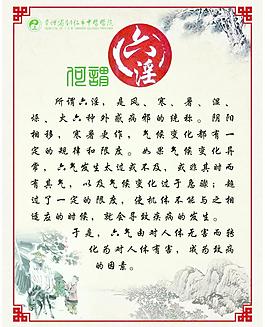 何謂
六淫
所谓六淫，是风、寒、暑、湿、
燥、火六种外感病邪的统称。阴阳
相移，寒暑更作，气候变化都有一
定的规律和限度。如果气候变化异
常，六气发生太过或不及，或非其时而
有其气，以及气候变化过于急骤；超
过了一定的限度，使机体不能与之相
适应的时候，就会导致疾病的发生。
于是，六气由对人体无害而转
化为对人体有害，成为致病
的因素。